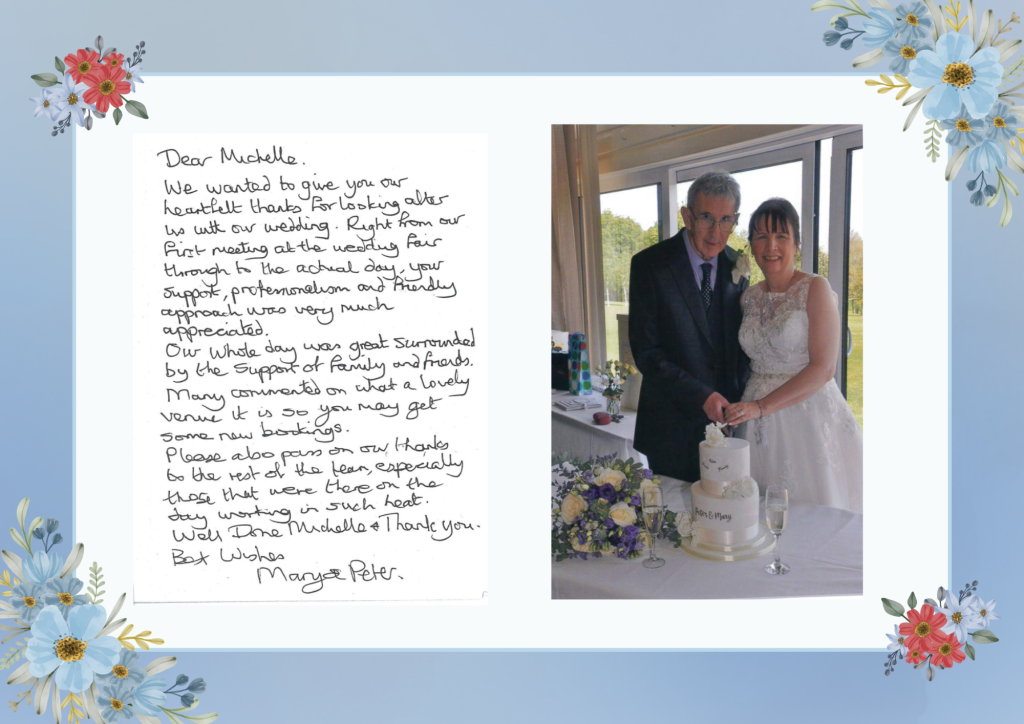 Dear Michelle.
We wanted to give you our
heartfelt thanks for looking after
us with our wedding. Right from our
first meeting at the wedding fair
through to the actual day, your
support, professionalism and friendly
approach was very much
appreciated.
Our whole day was great surrounded
by the support of family and friends.
Many commented on what a lovely
venue it is so you may get
some new bookings.
Please also pass on our thanks
to the rest of the team, especially
those that were there on the
day working in such heat.
Well Done Michelle & Thank you.
Best Wishes
Mary & Peter.
Peter & Mary